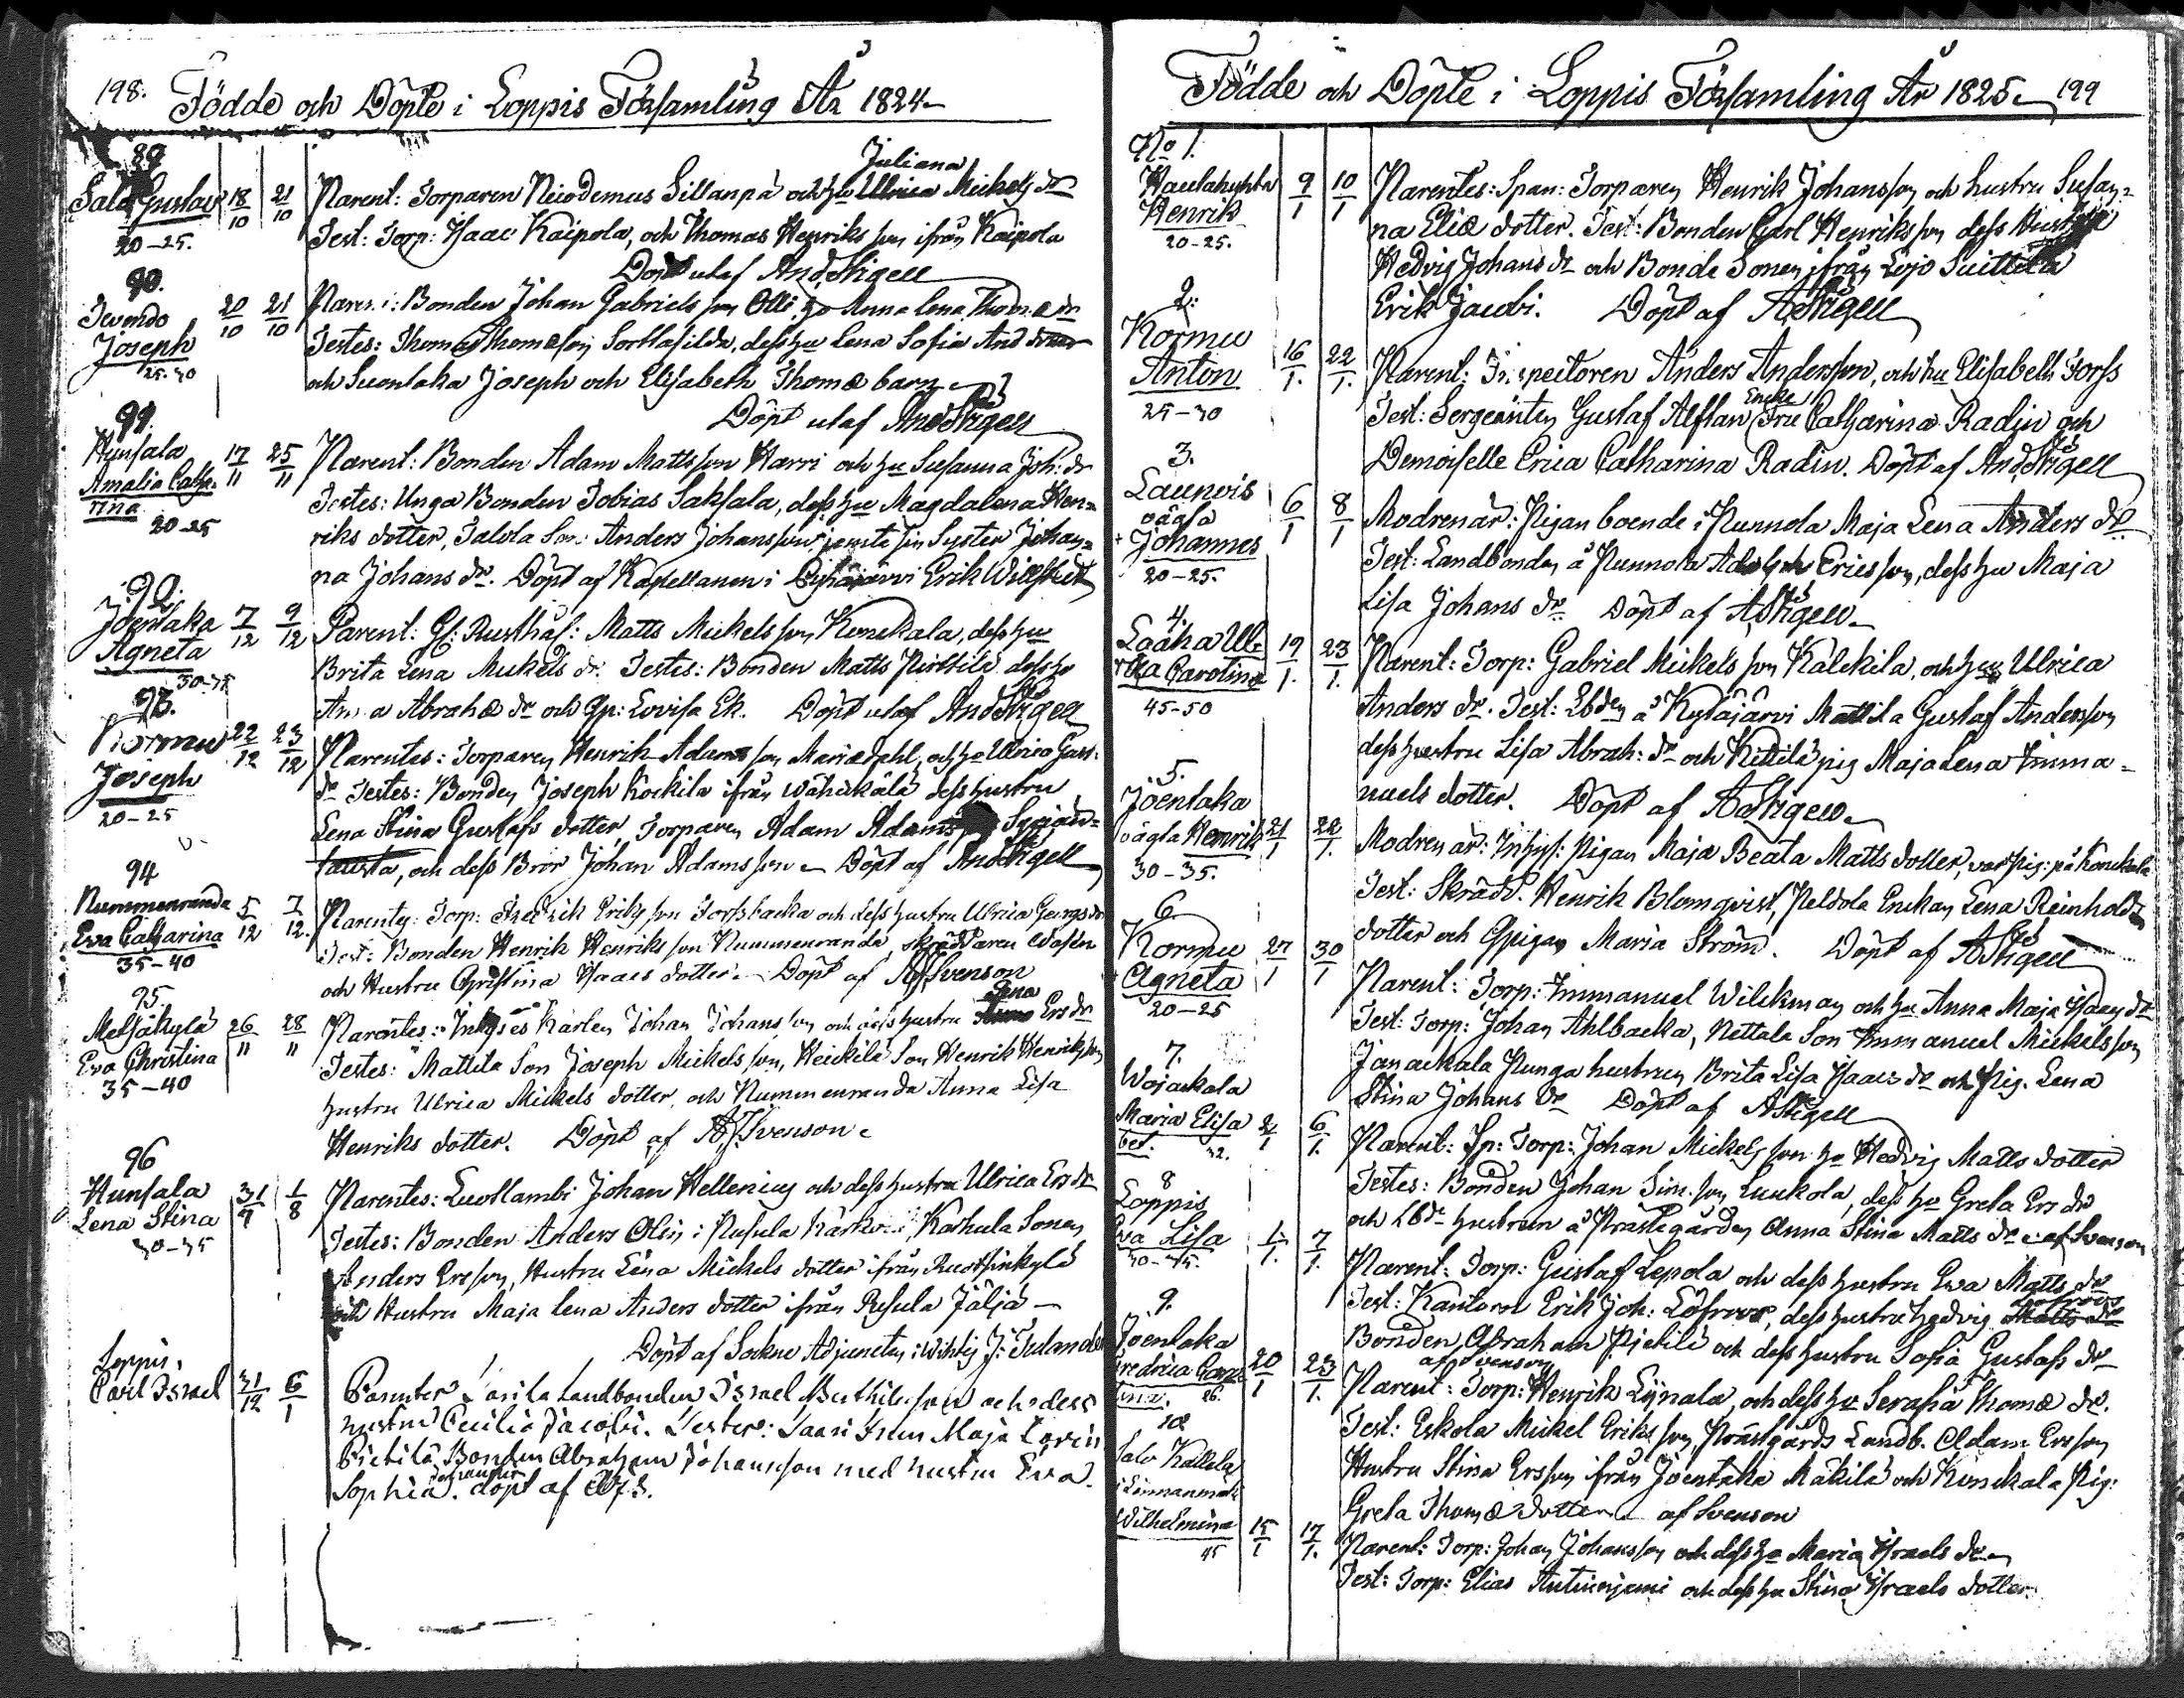 198. Födde och Döpte i Loppis Församling År 1824
89
Salo Gustav 18/10 21/10
20-25.
Parent: Torparen Nicodemus Sillanpä och hu Ulrica Juliana Mickels dr
Test: Torp: Isaac Kaipola, och Thomas Henriks son ifrån Kaipola
Döpt utaf And Stigell
90.
Joseph
25-30
20/10 21/10
Paren: Bonden Johan Gabriels son Olli, hu Anna Lena Thomæ dr
Testes: Thomas Thomæson Sorttasilda, dess hu Lena Sofia And
och Suontaka Joseph och Elisabeth Thomæ barn
Döpt utaf And Stigell
91.
Hunsala
Amalia Catha-
rina
20-25
17/11 25/11
Parent: Bonden Adam Matts son Harri och hu Susanna Joh: dr
Testes: Unga Bonden Tobias Saksala, dess hu Magdalena Hen=
riks dotter, Talola Son: Anders Johansson, jemte sin Syster Johan=
na Johans dr. Döpt af Kapellanen i Erik
92.
Joentaka
Agneta
30-35
7/12 9/12
Parent: Gl: Rusthål: Matts Mickels son Konckala, dess hu
Brita Lena Mickels dr. Testes: Bonden Matts Pirttilä dess hu
Anna Abrahæ dr och Gp: Lovisa Ek. Döpt utaf And Stigell
93.
Kormu
Joseph
20-25
22/12 23/12
Parentes: Torparen Henrik Adamsson Mariædahl, och hu Ulrica Gust:
dr Testes: Bonden Joseph Kockila ifrån Wähäkälä dess hustru
Lena Stina Gustafs dotter Torparen Adam Adams
tausta, och dess Bror Johan Adamsson Döpt af And Stigell
94
Nummenranda
Eva Catharina
35-40
5/12 7/12.
Parentes: Torp: Fredrik Eriks son Torfsbacka och dess hustru Ulrica Georgs dr
Test: Bonden Henrik Henriks son Nummenranda skräddaren Wasén
och Hustru Christina Isaacs dotter. Döpt af AJ Svenson
95.
Metsäkylä
Eva Christina
35-40
26/11 28/11
Parentes: Inhyses Karlen Johan Johans son och dess hustru Lena Ers dr
Testes: Mattila Son Joseph Mickels son, Heickilä Son Henrik Henriksson
hustru Ulrica Mickels dotter, och Nummenranda Anna Lisa
Henriks dotter. Döpt af AJ Svenson
96
Hunsala
Lena Stina
30-35
31/7 1/8
Parentes: Luollambi Johan Hellenius och dess hustru Ulrica Ers dr
Testes: Bonden Anders Olsin i Rusula Karhula Sonen
Anders Ersson, Hustru Lena Mickels dotter ifrån Ruotsinkylä
och Hustru Maja Lena Anders dotter ifrån Resula Jäljä
Döpt af Sockne Adjuncten i Wihtij J: Tulander
Loppis.
Carl Israel 31/12 6/1
Parenter Landbonden Israel son och dess
hustru Cecilia Jacobi. Tester: Maja
Pietilä Bonden Abraham Johansson med hustru Eva
Sophia Johansdr. döpt af AJS.
Födde och Döpte i Loppis Församling År 1825 199
No 1.
Henrik
20-25.
9/1 10/1
Parentes: Span: Torparen Henrik Johansson och hustru Susan=
na Eliæ dotter. Test: Bonden Carl Henriksson dess Hustru
Hedvig Johans dr och Bonde Sonen ifrån Lojo Suittila
Erik Jacobi. Döpt af A Stigell
2:
Kormu
Anton
25-30
16/1. 22/1.
Parent: Inspectoren Anders Andersson, och hu Elisabeth Forss
Test: Sergeanten Gustaf Alftan Encke Fru Catharina Radin och
Demoiselle Erica Catharina Radin. Döpt af And Stigell
3.
Launois
oägta
+ Johannes
20-25.
6/1 8/1
Modren är: Pigan boende i Punnola Maja Lena Anders dr
Test: Landbonden å Punnola Adolph Ericsson, dess hu Maja
Lisa Johans dr Döpt af A Stigell
4.
Laaka Ul-
rika Carolina
45-50
19/1. 23/1.
Parent: Torp: Gabriel Mickels son Kalckila, och hu Ulrica
Anders dr. Test: Lbden å Kytäjärvi Mattila Gustaf Andersson
dess hustru Lisa Abrah: dr och Kittilä pig Maja Lena Imma=
nuels dotter. Döpt af A Stigell
5.
Joentaka
oägta Henrik
30-35.
21/1 22/1.
Modren är: Inhys: Pigan Maja Beata Matts dotter, var pig: på Konckala
Test: Skrädd. Henrik Blomqvist, Peldola Enckan Lena Reinholds
dotter och Gpigan Maria Ström. Döpt af A Stigell
6.
Kormu
+ Agneta
20-25
27/1 30/1
Parent: Torp: Immanuel Wilckman och hu Anna Maja Isaacs dr
Test: Torp: Johan Ahlbacka, Nettala Son Immanuel Mickelsson
Janackala Punga hustrun Brita Lisa Isaacs dr och Pig. Lena
Stina Johans dr Döpt af A Stigell
7.
Wojackala
Maria Elisa
bet.
32.
2/1 6/1.
Parent: Sp: Torp: Johan Mickels son hu Hedvig Matts dotter
Testes: Bonden Johan Sim. son Luukola, dess hu Greta Ers dr
och Lbde hustrun å Prästegården Anna Stina Matts dr af Svenson
8
Loppis
Eva Lisa
1/1. 7/1.
Parent: Torp: Gustaf Lepola och dess hustru Eva Matts dr
Test: Kantorn Erik Joh: Löfroos, dess hustru Hedvig Löfroos Matts dr
Bonden Abraham Pietilä och dess hustru Sofia Gustafs dr
af Svenson
9.
Joentaka
Fredrica
26.
20/1 23/1.
Parent: Torp: Henrik Lijnala, och dess hu Serafia Thomæ dr.
Test: Eskola Mickel Eriks son, Prästgårds Landb. Adam Ersson
Hustru Stina Ersson ifrån Joentaka Mäkilä och Konckala Pig:
Greta Thomæ dotter af Svenson
10.
Salo Kallela
Wilhelmina
45
15/1 17/1.
Parent: Torp: Johan Johansson och dess hu Maria Israels dr
Test: Torp: Elias Antinniemi och dess hu Stina Israels dotter.